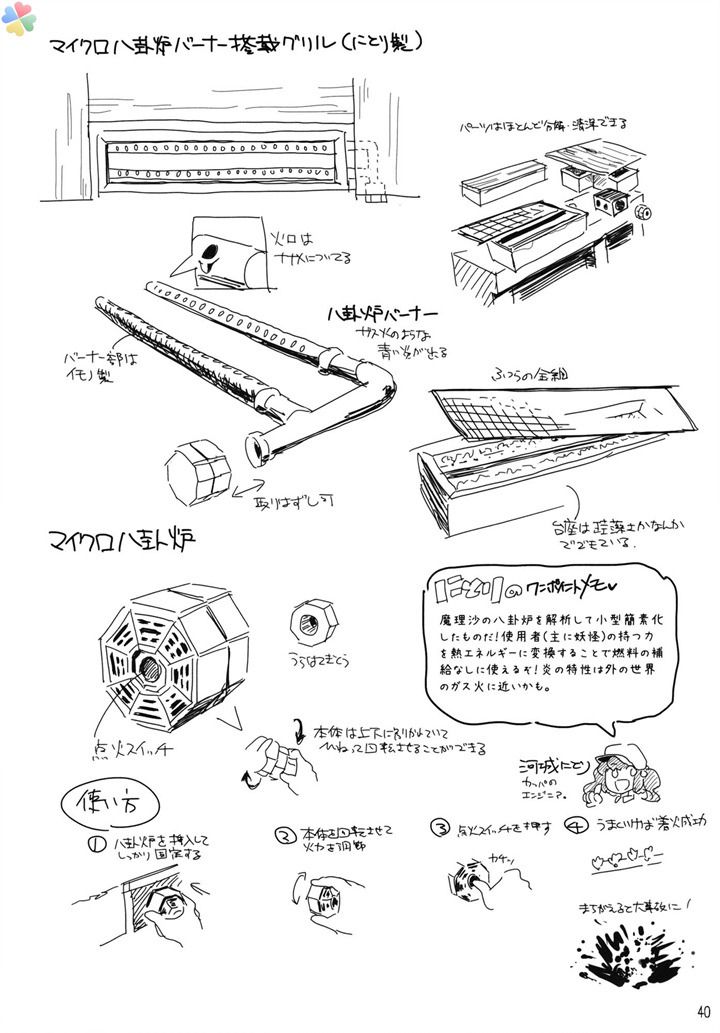 マイクロ八卦炉バーナー搭載グリル(にとり製)
パーツはほとんど分解・清潔できる
火口は
ナナメについてる
八卦炉バーナー
ガス火のような
青い炎が出る
バーナー部は
イモノ製
ふつうの金網
取りはずし可
台座は珪藻土かなんか
でできている.
マイクロ八卦炉
にとりのワンポイントメモ
魔理沙の八卦炉を解析して小型簡素化
したものだ!使用者(主に妖怪)の持つ力
を熱エネルギーに変換することで燃料の補
給なしに使えるぞ!炎の特性は外の世界
のガス火に近いかも。
うらはてきとう
点火スイッチ
本体は上下に別かれていて
ひねって回転させることができる
河城にとり
カッパの
エンジニア。
使い方
① 八卦炉を挿入して
しっかり固定する
② 本体を回転させて
火力を調節
③ 点火スイッチを押す
カチッ
④ うまくいけば着火成功
まちがえると大事故に!
40